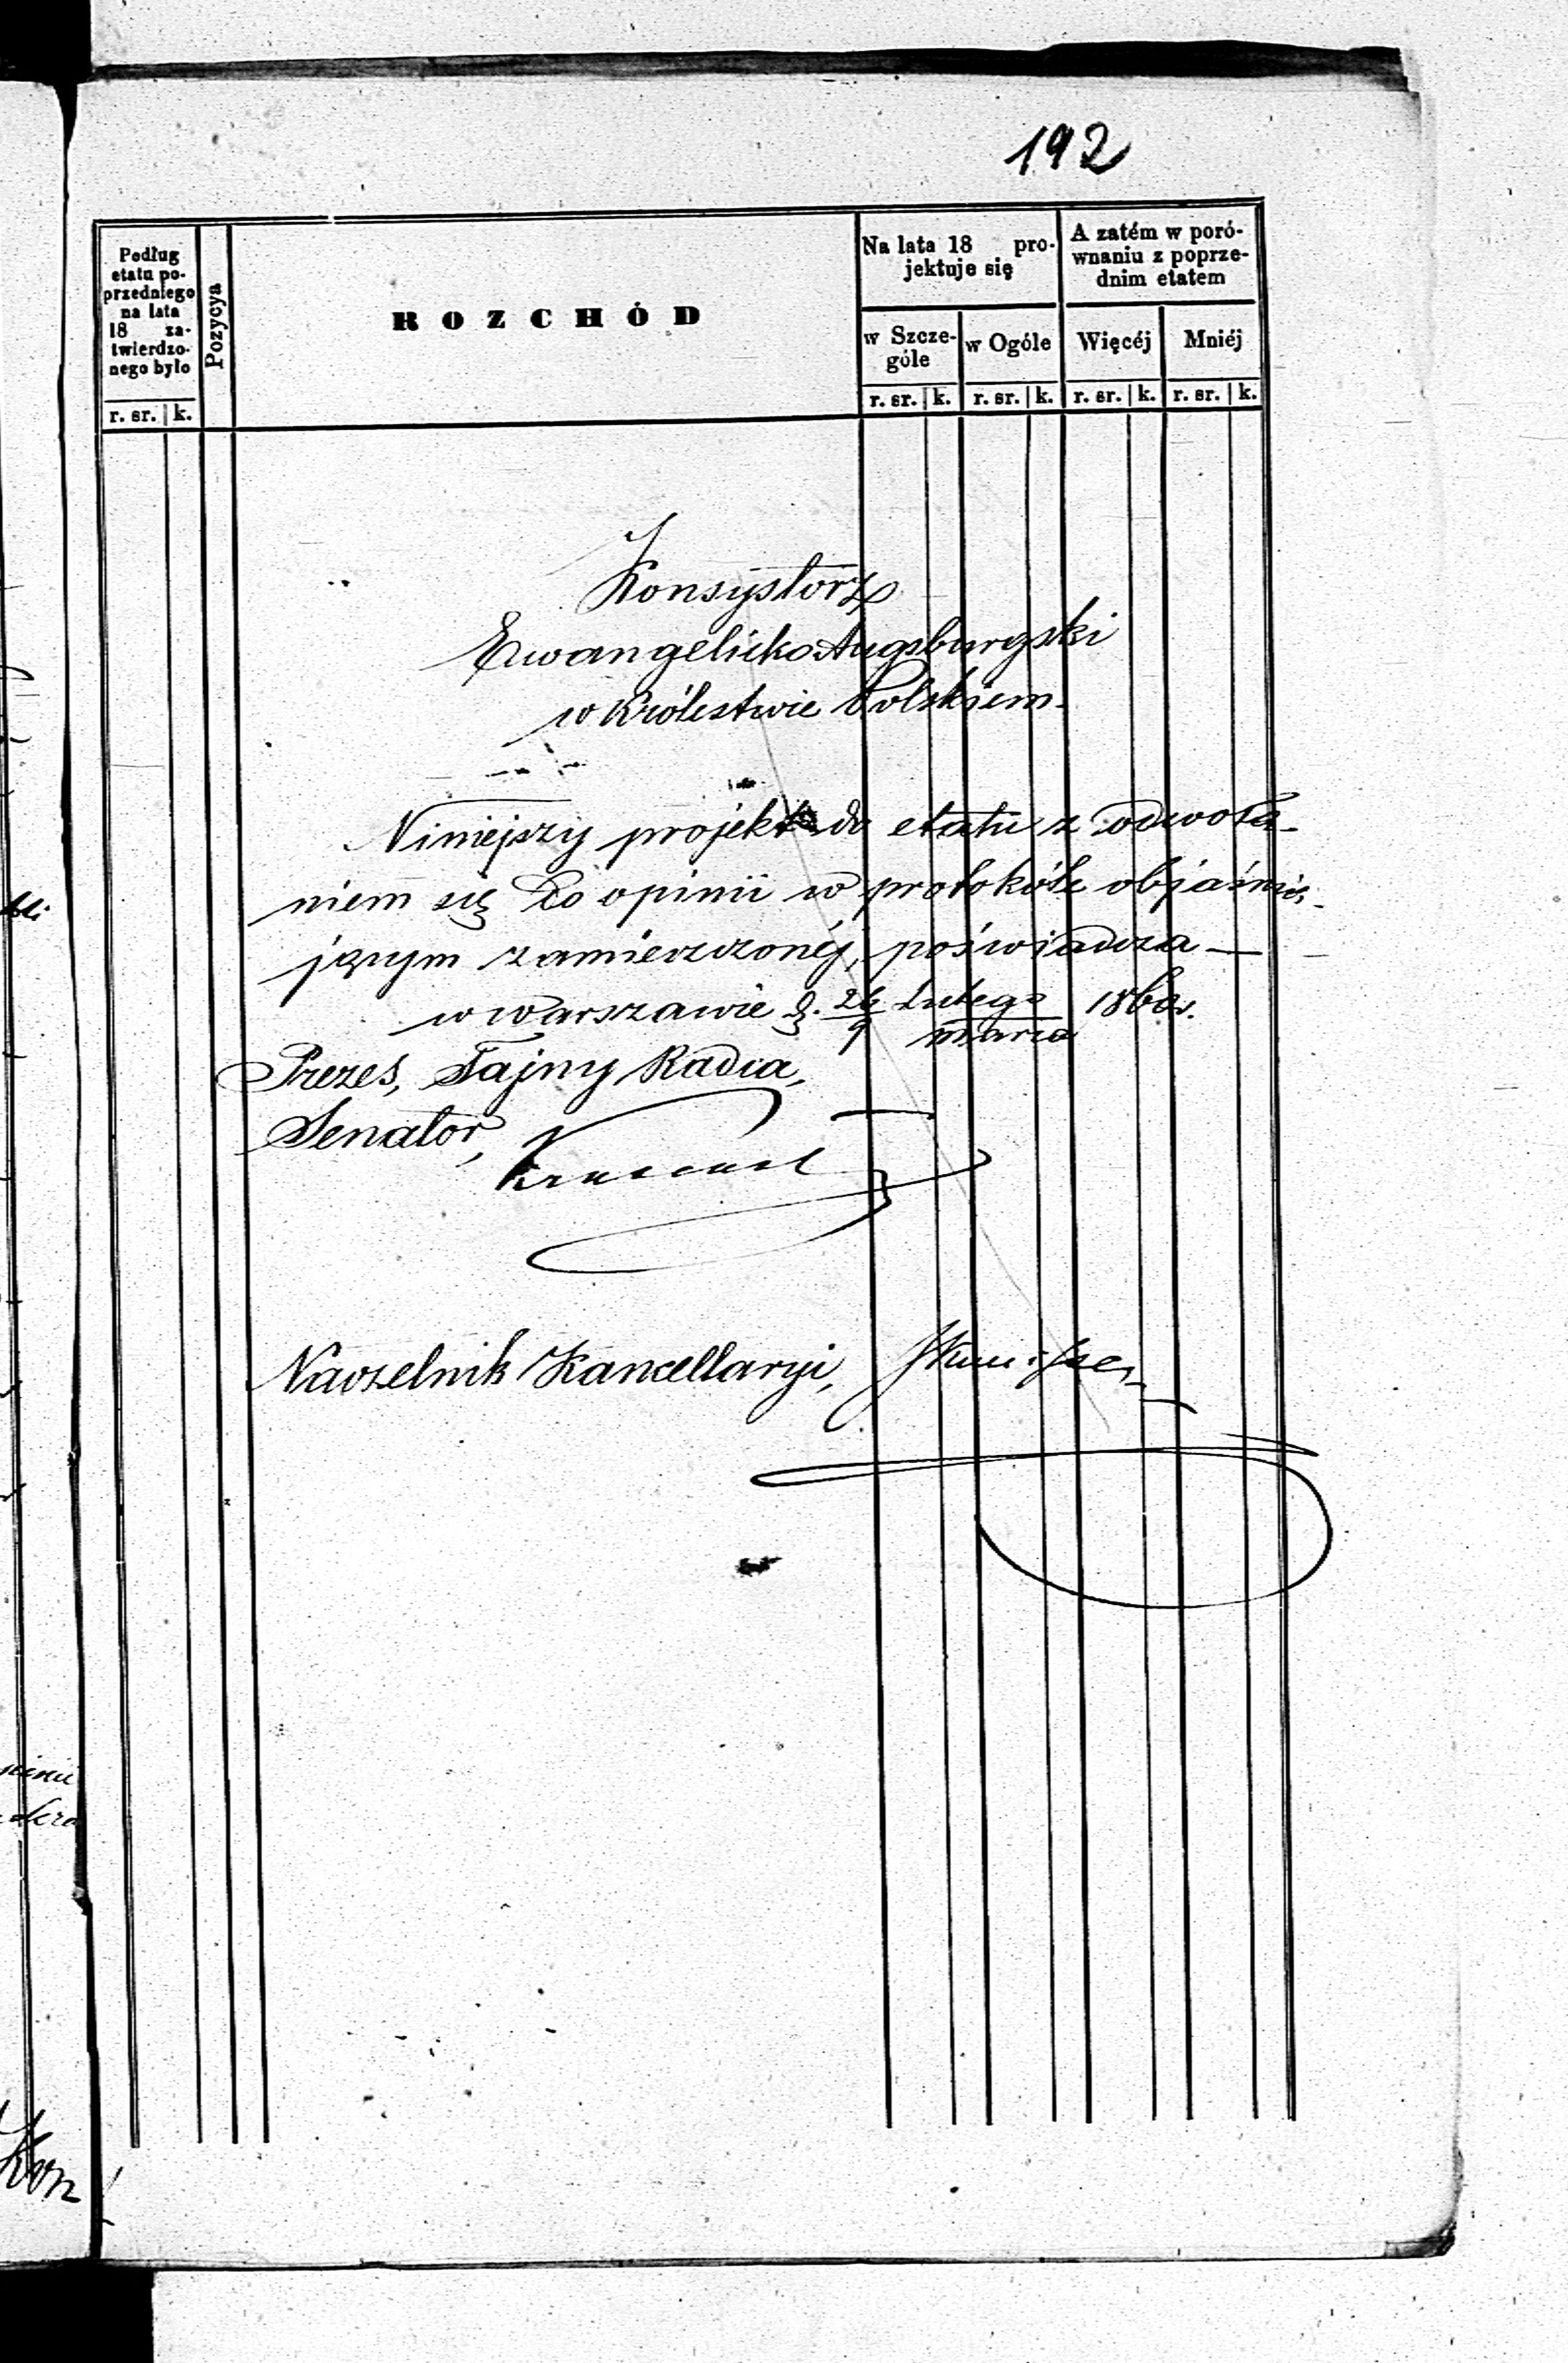 192
Podług
etatu po-
przedniego
na lata
18 za-
twierdzo-
nego było
r. sr. k.
Pozycya
ROZCHÓD
Na lata 18 pro-
jektuje się
w Szcze-
góle
r. sr. k.
w Ogóle
r. sr. k.
A zatém w poró-
wnaniu z poprze-
dnim etatem
Więcéj
r. sr. k.
Mniéj
r. sr. k.
Konsystorz
Ewangelicko Augsburgski
w Królestwie Polskiem.
Niniejszy projekt do etatu z odwoła-
niem się do opinii w protokóle objaśnia-
jącym zamieszczonéj, poświadcza
w Warszawie d. 26/9 Lutego/Marca 1860 r.
Prezes, Tajny Radca,
Senator,
Naczelnik Kancellaryi,